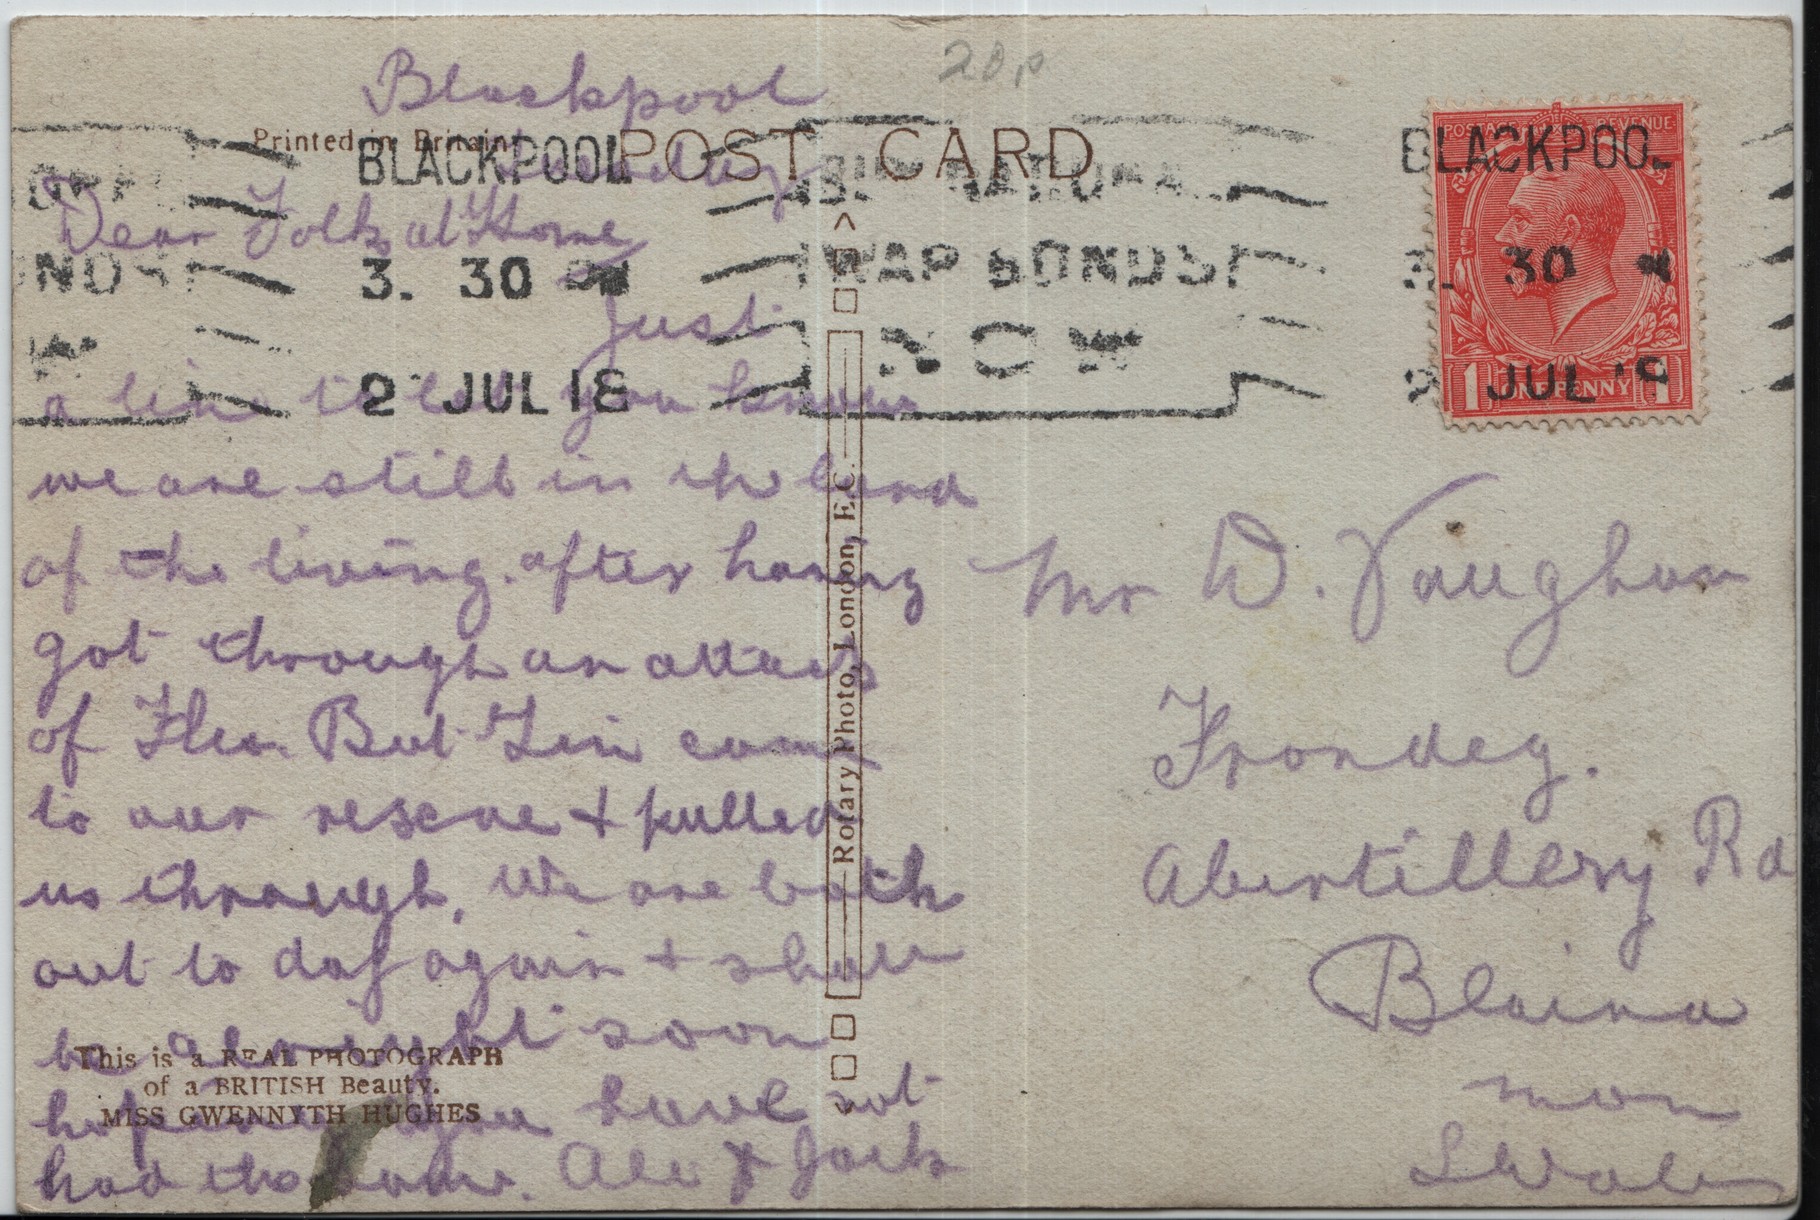 20p
Blackpool
Printed in Britain
POST CARD
BLACKPOOL
3. 30 PM
2 JUL 18
NATIONAL
WAR BONDS
NOW
POSTAGE REVENUE
BLACKPOOL
30
JUL
1 ONE PENNY 1
Dear Folks at Home
Just
a line to let you know
we are still in the land
of the living. after having
got through an attack
of Flu. But Gin came
to our rescue + pulled
us through. We are both
out to day again + shall
be alright soon
hope you have not
had the same. & Jack
Rotary Photo, London, E.C.
This is a REAL PHOTOGRAPH
of a BRITISH Beauty.
MISS GWENNYTH HUGHES
Mr D. Vaughan
Frondeg.
Abertillery Rd
Blaina
Mon
S Wales